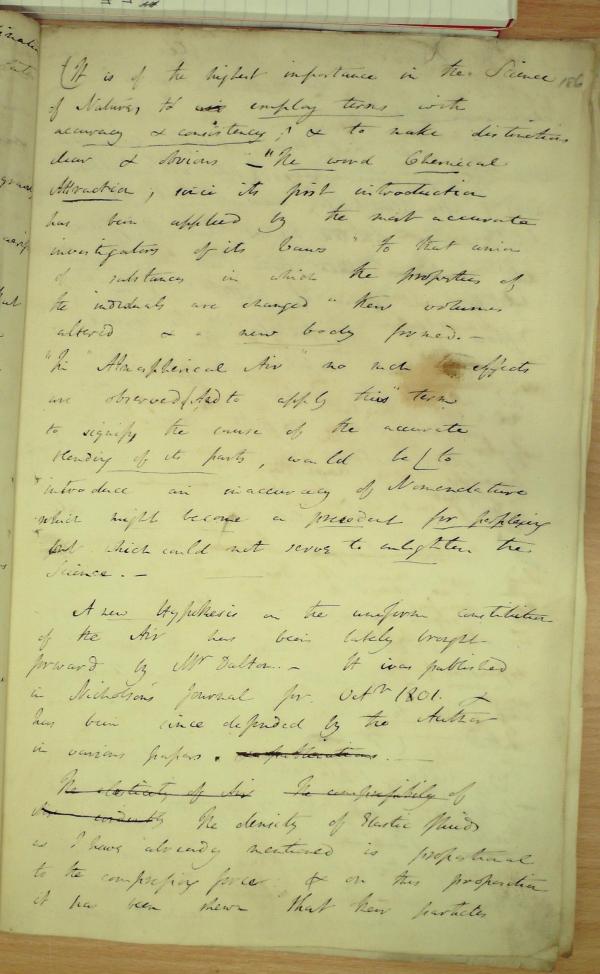 (It is of the highest importance in the Science 186
of Nature, to employ terms with
accuracy & consistency, & to make distinctions
clear & obvious - "The word Chemical
Attraction, since its first introduction
has been applied by the most accurate
investigators of its Laws" to that union
of substances in which the properties of
the individuals are changed "their volumes
altered & a new body formed. -
"In "Atmospherical Air" no such effects
are observed (And to apply this" term
to signify the cause of the accurate
blending of its parts, would be [to
introduce an inaccuracy of Nomenclature
which might become a precedent for perplexing
but which could not serve to enlighten the
Science. -
A new Hypothesis on the uniform constitution
of the Air has been lately brought
forward by Mr Dalton. - It was published
in Nicholson's Journal for Octr 1801. &
has been since defended by the Author
in various papers. publications. -
The elasticity of Air The compressibility of
The density of Elastic fluids
as I have already mentioned is proportional
to the compressing force & on this proposition
it has been shewn that their particles